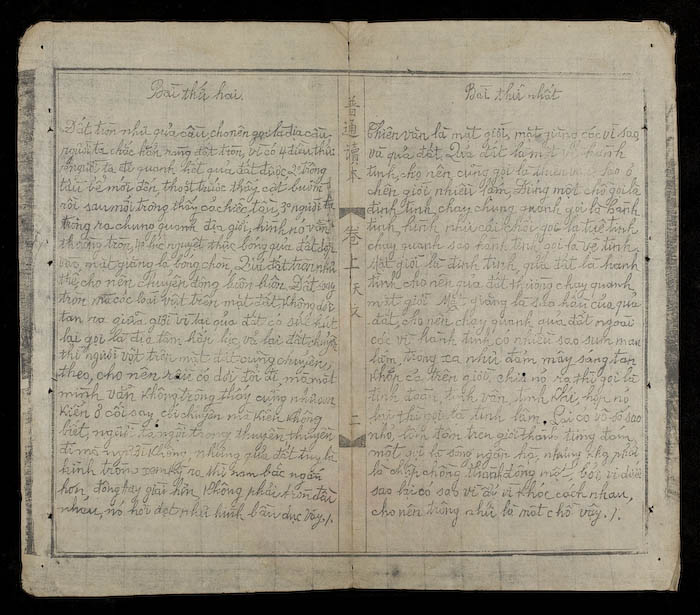 Bài thứ nhất
Thiên văn là mặt giời, mặt giăng các vì sao,
và quả đất, Quả đất là một hành
tinh, cho nên cũng gọi là sao ở
chên giời nhiều lắm, đứng một chỗ gọi là
định tinh chạy chung quanh gọi là hành
tinh, hình như cái chổi gọi là tuệ tinh
chạy quanh sao hành tinh gọi là vệ tinh.
Mặt giời là định tinh, quả đất là hành
tinh, cho nên quả đất thường chạy quanh
mặt giời mặt giăng là sao hầu của quả
đất, cho nên chạy quanh quả đất ngoài
các vì hành tinh có nhiều sao sum mau
lắm, trông xa như đám mây sáng tan
khắp cả trên giời, chia nó ra thì gọi là
tinh đoàn, tinh vân, tinh khí, hợp nó
lại thì gọi là tinh lâm, Lại có vô số sao
nhỏ, lớp tầm tren giời thành từng đám
một gọi là sông ngân hà, nhưng kỳ phải
là chấp chồng thành đống một, bởi vì
sao lại có sao vì ấy vì khác cách nhau,
cho nên trông như là một chỗ vậy./.
普通讀本
卷上天文
二
Bài thứ hai.
Đất tròn như quả cầu cho nên gọi là địa cầu,
người ta chắc hẳn rằng đất tròn, vì có 4 điều thứ
người ta đi quanh hết quả đất được, 2º trông
tàu bể mới đến thoạt trước thấy cột buồm
rồi sau mới trông thấy cả chiếc tàu, 3º người ta
trông ra chung quanh địa giới, hình nó vẫn
thoáng tròn, 4º lúc nguyệt thực bóng quả đất dọi
vào mặt giăng là bóng chòn, Quả đất tròn như
thế, cho nên chuyển động luôn luôn. Đất xoay
tròn mà các loài vật trên mặt đất không dời
tan ra giữa giời vì tại quả đất có sức hút
lại gọi là địa tâm hấp lực, vì lại đất chuyển
thì người vật trên mặt đất cũng chuyển,
theo, cho nên rẫu có dời đổi đi, mà mắt
mình vẫn không trông thấy cũng như con
kiến ở cối say, cối chuyển mà kiến không
biết, người ta ngồi trong thuyền thuyền
đi mà người không, nhưng quả đất tuy là
hình tròn xem kỹ ra thì nam bắc ngắn
hơn, đông tây giài hơn không phải tròn đều
nhau, nó hơi dẹt như hình bầu dục vậy./.